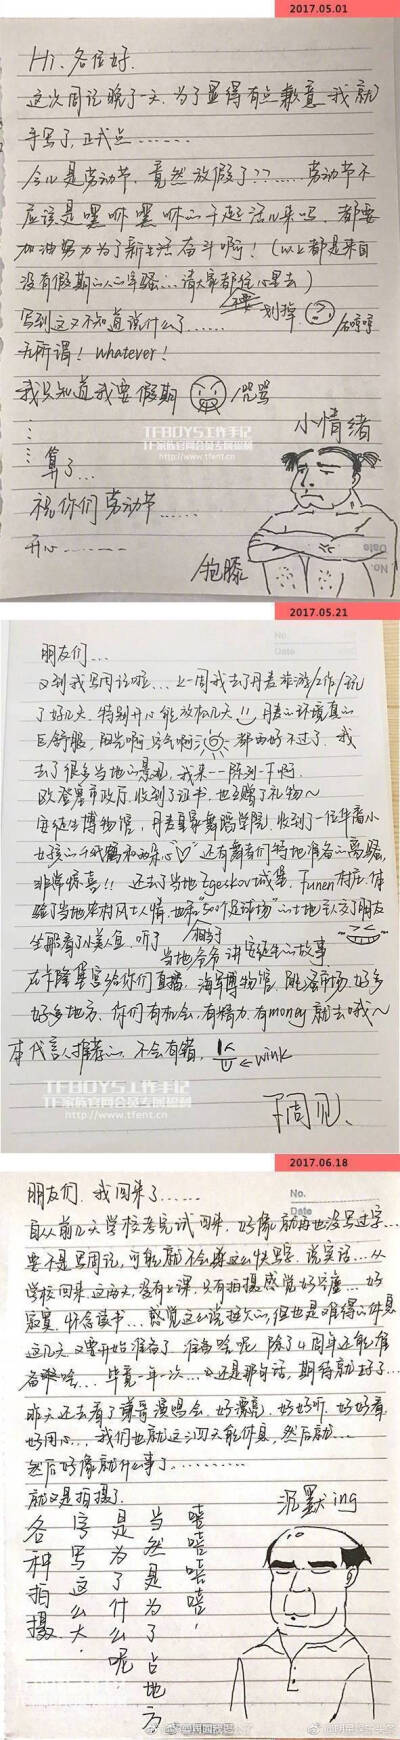 2017.05.01
Hi. 各位好.
这次周记晚了一天.为了显得有点歉意 我就
手写了,正式点……
今儿是劳动节,竟然放假了??……劳动节不
应该是嘿咻嘿咻的干起活儿来吗,都要
加油努力为了新生活奋斗啊!(以上都是来自
没有假期的人的牢骚…请大家都往心里去)
不要 划掉
写到这又不知道说什么了…… /右哼哼
无所谓! whatever!
我只知道我要假期 /咒骂
TFBOYS工作手记
TF家族官网会员专属福利
http://www.tfent.cn
小情绪
……
算了…
祝你们劳动节……
开心……
/抱膝
No.
Date
2017.05.21
No.
Date
朋友们…
又到我写周记啦…上一周我去了丹麦旅游/工作/玩
了好几天.特别开心能放松几天 丹麦的环境真的
巨舒服,阳光啊空气啊 都再好不过了.我
去了很多当地的景观,我来一一陈列一下啊.
欧登塞市政厅,收到了证书,也互赠了礼物~
安徒生博物馆,丹麦皇家舞蹈学院.收到了一位华裔小
女孩的千纸鹤和两颗心"♡"还有舞者们特地准备的
非常惊喜!! 还去了当地Egeskov城堡,Funen村庄.体
验了当地农村风土人情.也和"500个足球场"的土地主人交了朋友
相当于
坐那看了小美人鱼.听了当地爷爷讲安徒生的故事
在卡隆堡宫给你们直播,海军博物馆,跳蚤市场.好多
好多地方.你们有机会,有精力,有money就去哦~
本代言人推荐的,不会有错, ←wink
TFBOYS工作手记
TF家族官网会员专属福利
http://www.tfent.cn
2017.06.18
No.
Date
朋友们.我回来了……
自从前几天学校考完试回来.好像就再也没写过字…
要不是写周记,可能就不会这么快写字.说实话…从
学校回来这两天,没有上课.只有拍摄感觉好空虚…好
寂寞.怀念读书…感觉这么说挺欠的.但也是难得的休息
这几天又要开始准备了.准备啥呢 除了4周年还能准
备啥…毕竟一年一次…还是那句话,期待就好了…
昨天还去看了 演唱会.好漂亮.好好听.好好看
好用心…我们也就这三四天能休息,然后就…
然后好像就什么事了……
就又是拍摄了.
各种拍摄
字写这么大.
是为了什么呢
当然是为了占地方
嘻嘻嘻嘻.
沉默ing
TF家族官网会员专属福利
http://www.tfent.cn